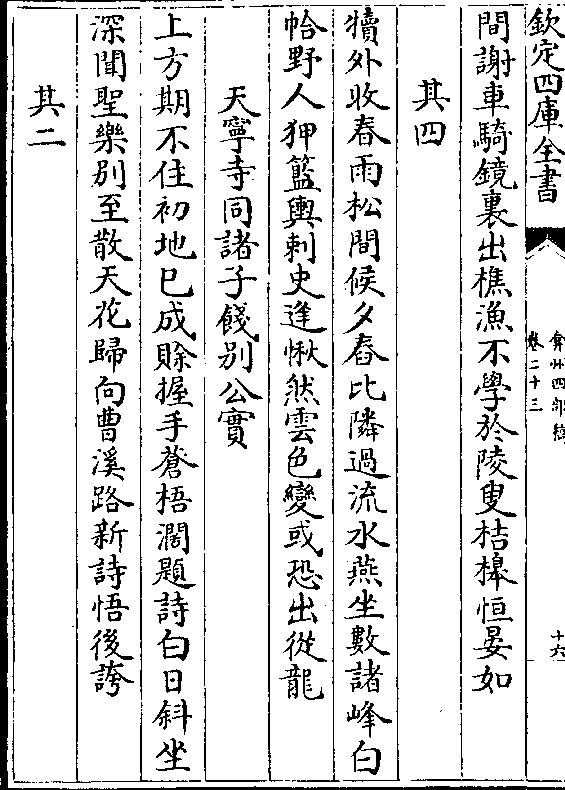 欽定四庫全書
弇州四部稿
卷二十三
十六
間謝車騎鏡裏出樵漁不學於陵叟桔槹恒晏如
其四
犢外收春雨松間候夕舂比隣過流水燕坐數諸峰白
帢野人狎籃輿刺史逢愀然雲色變或恐出從龍
天寧寺同諸子餞别公實
上方期不住初地已成賖握手蒼梧濶題詩白日斜坐
深聞聖樂别至散天花歸向曹溪路新詩悟後誇
其二